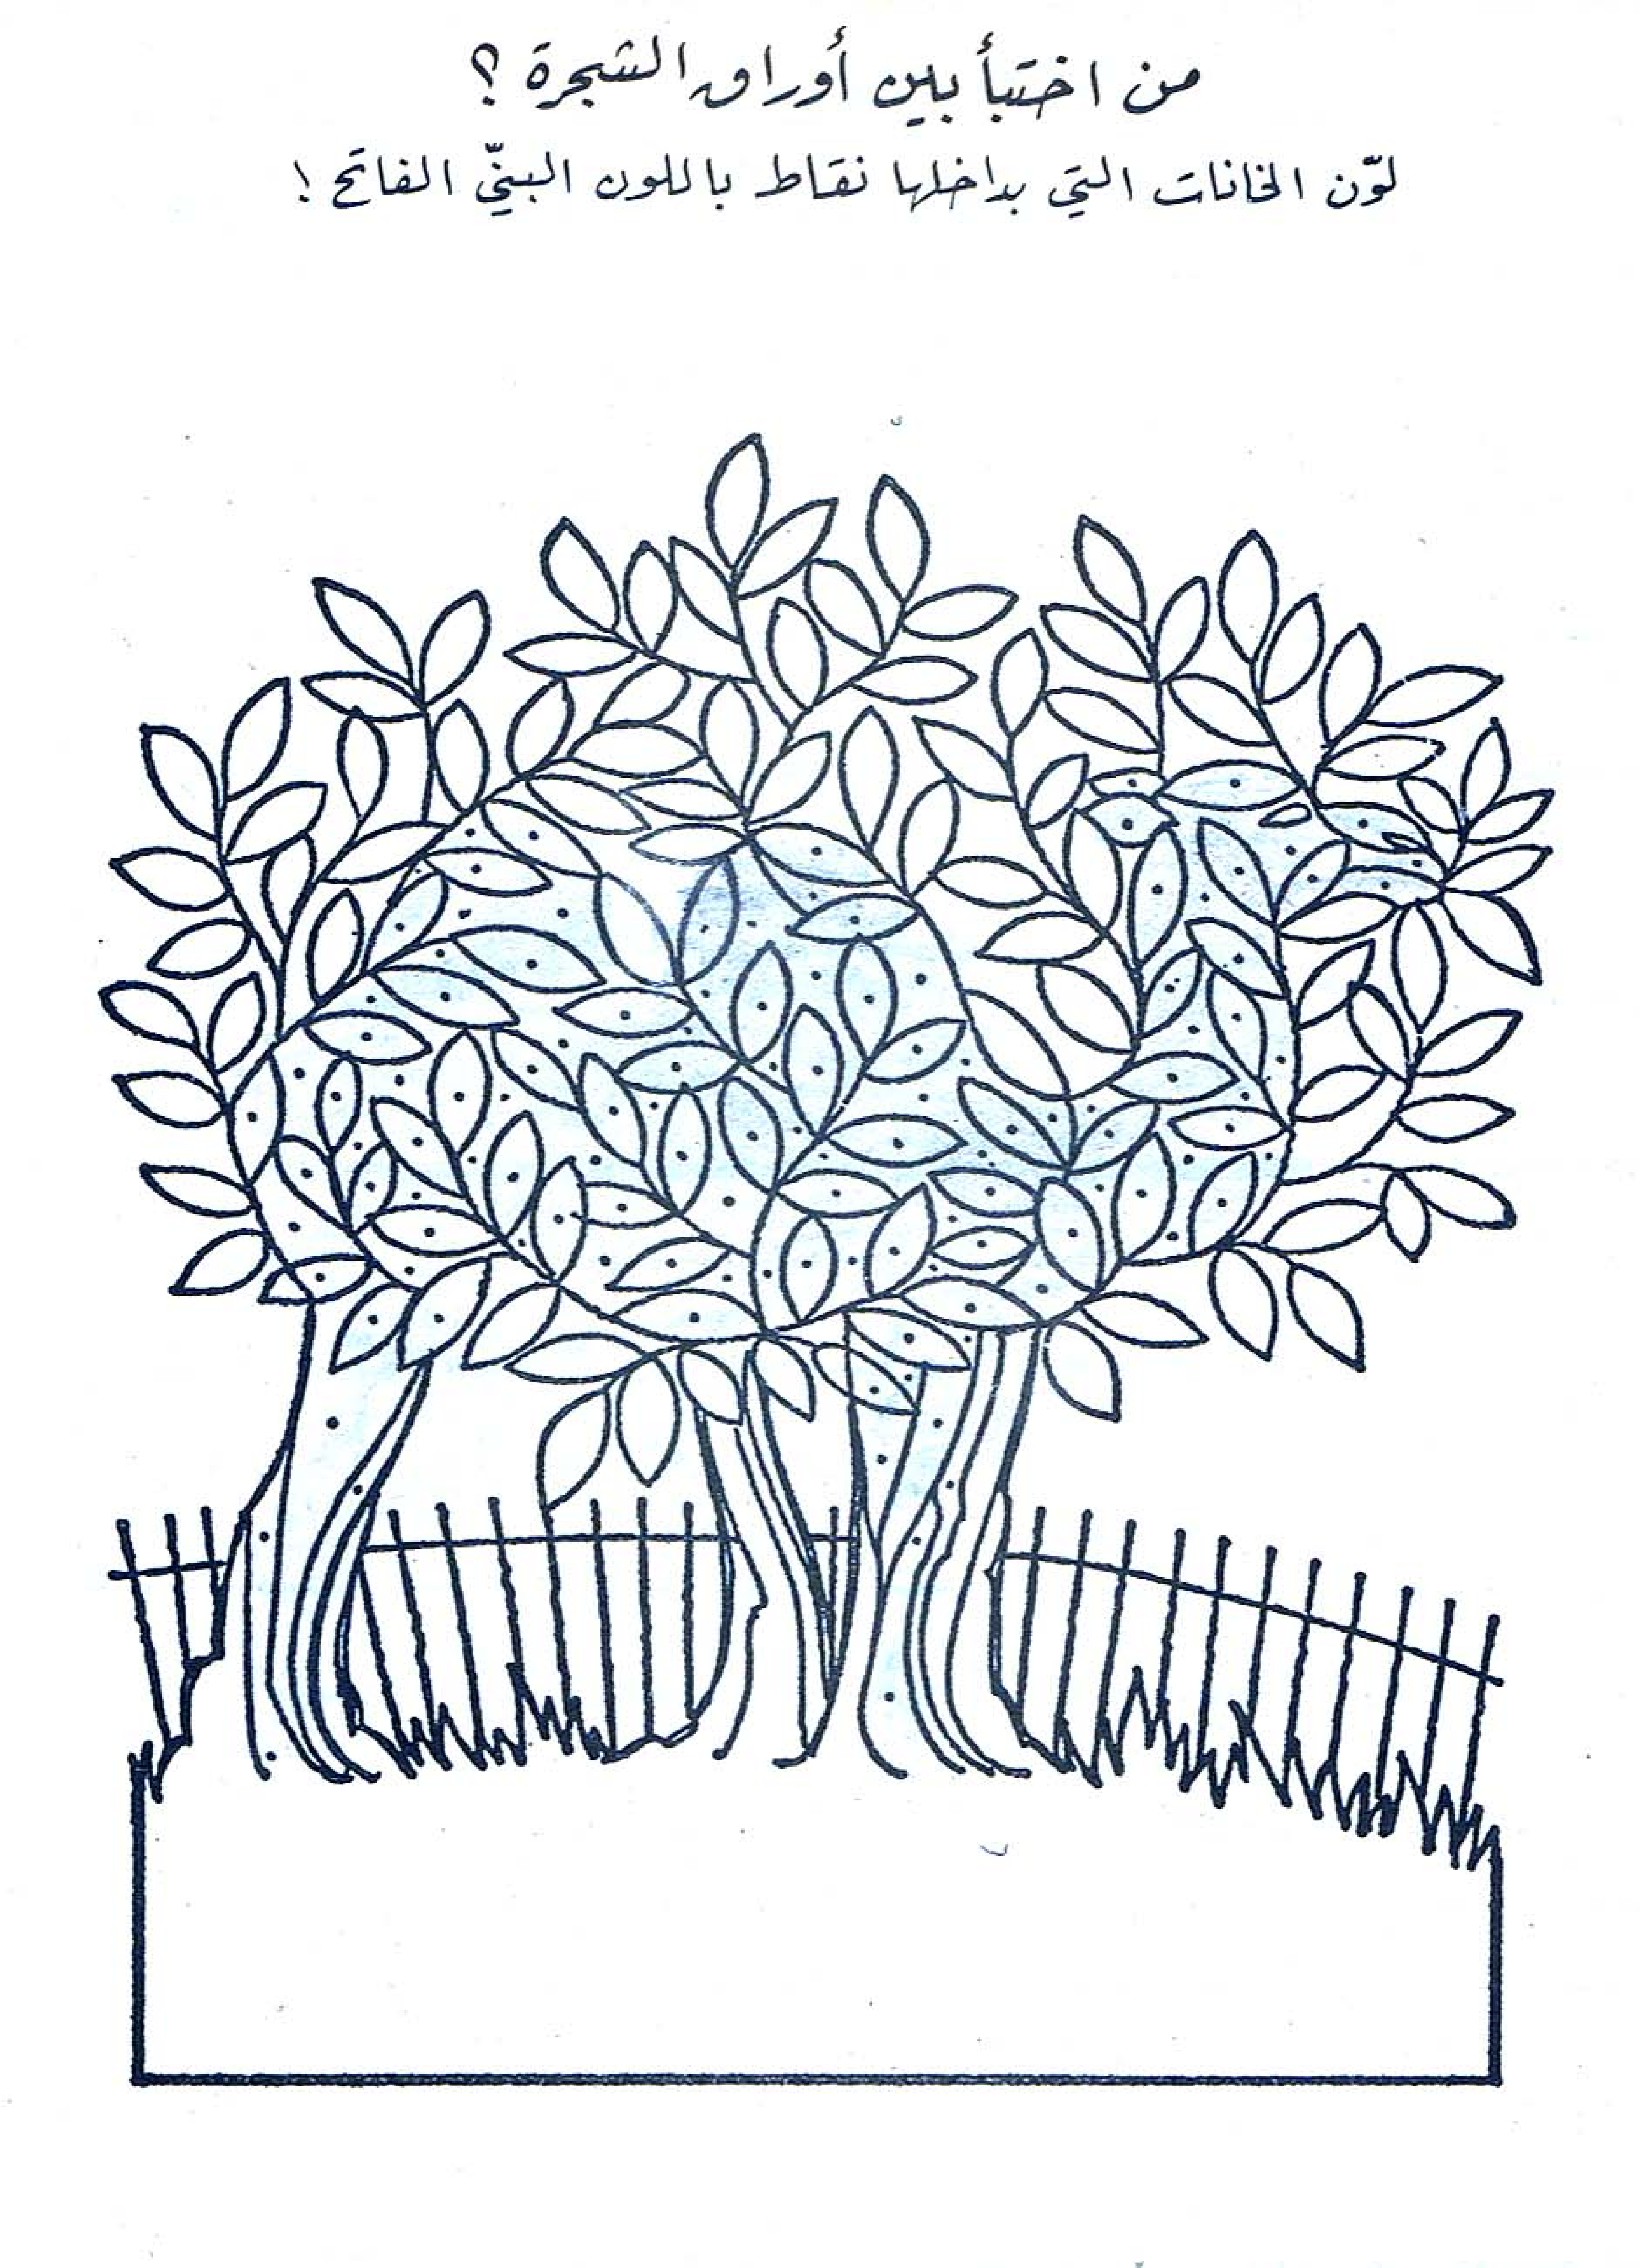 من اختبأ بين أوراق الشجرة ؟
لوّن الخانات التي بداخلها نقاط باللون البنيّ الفاتح !